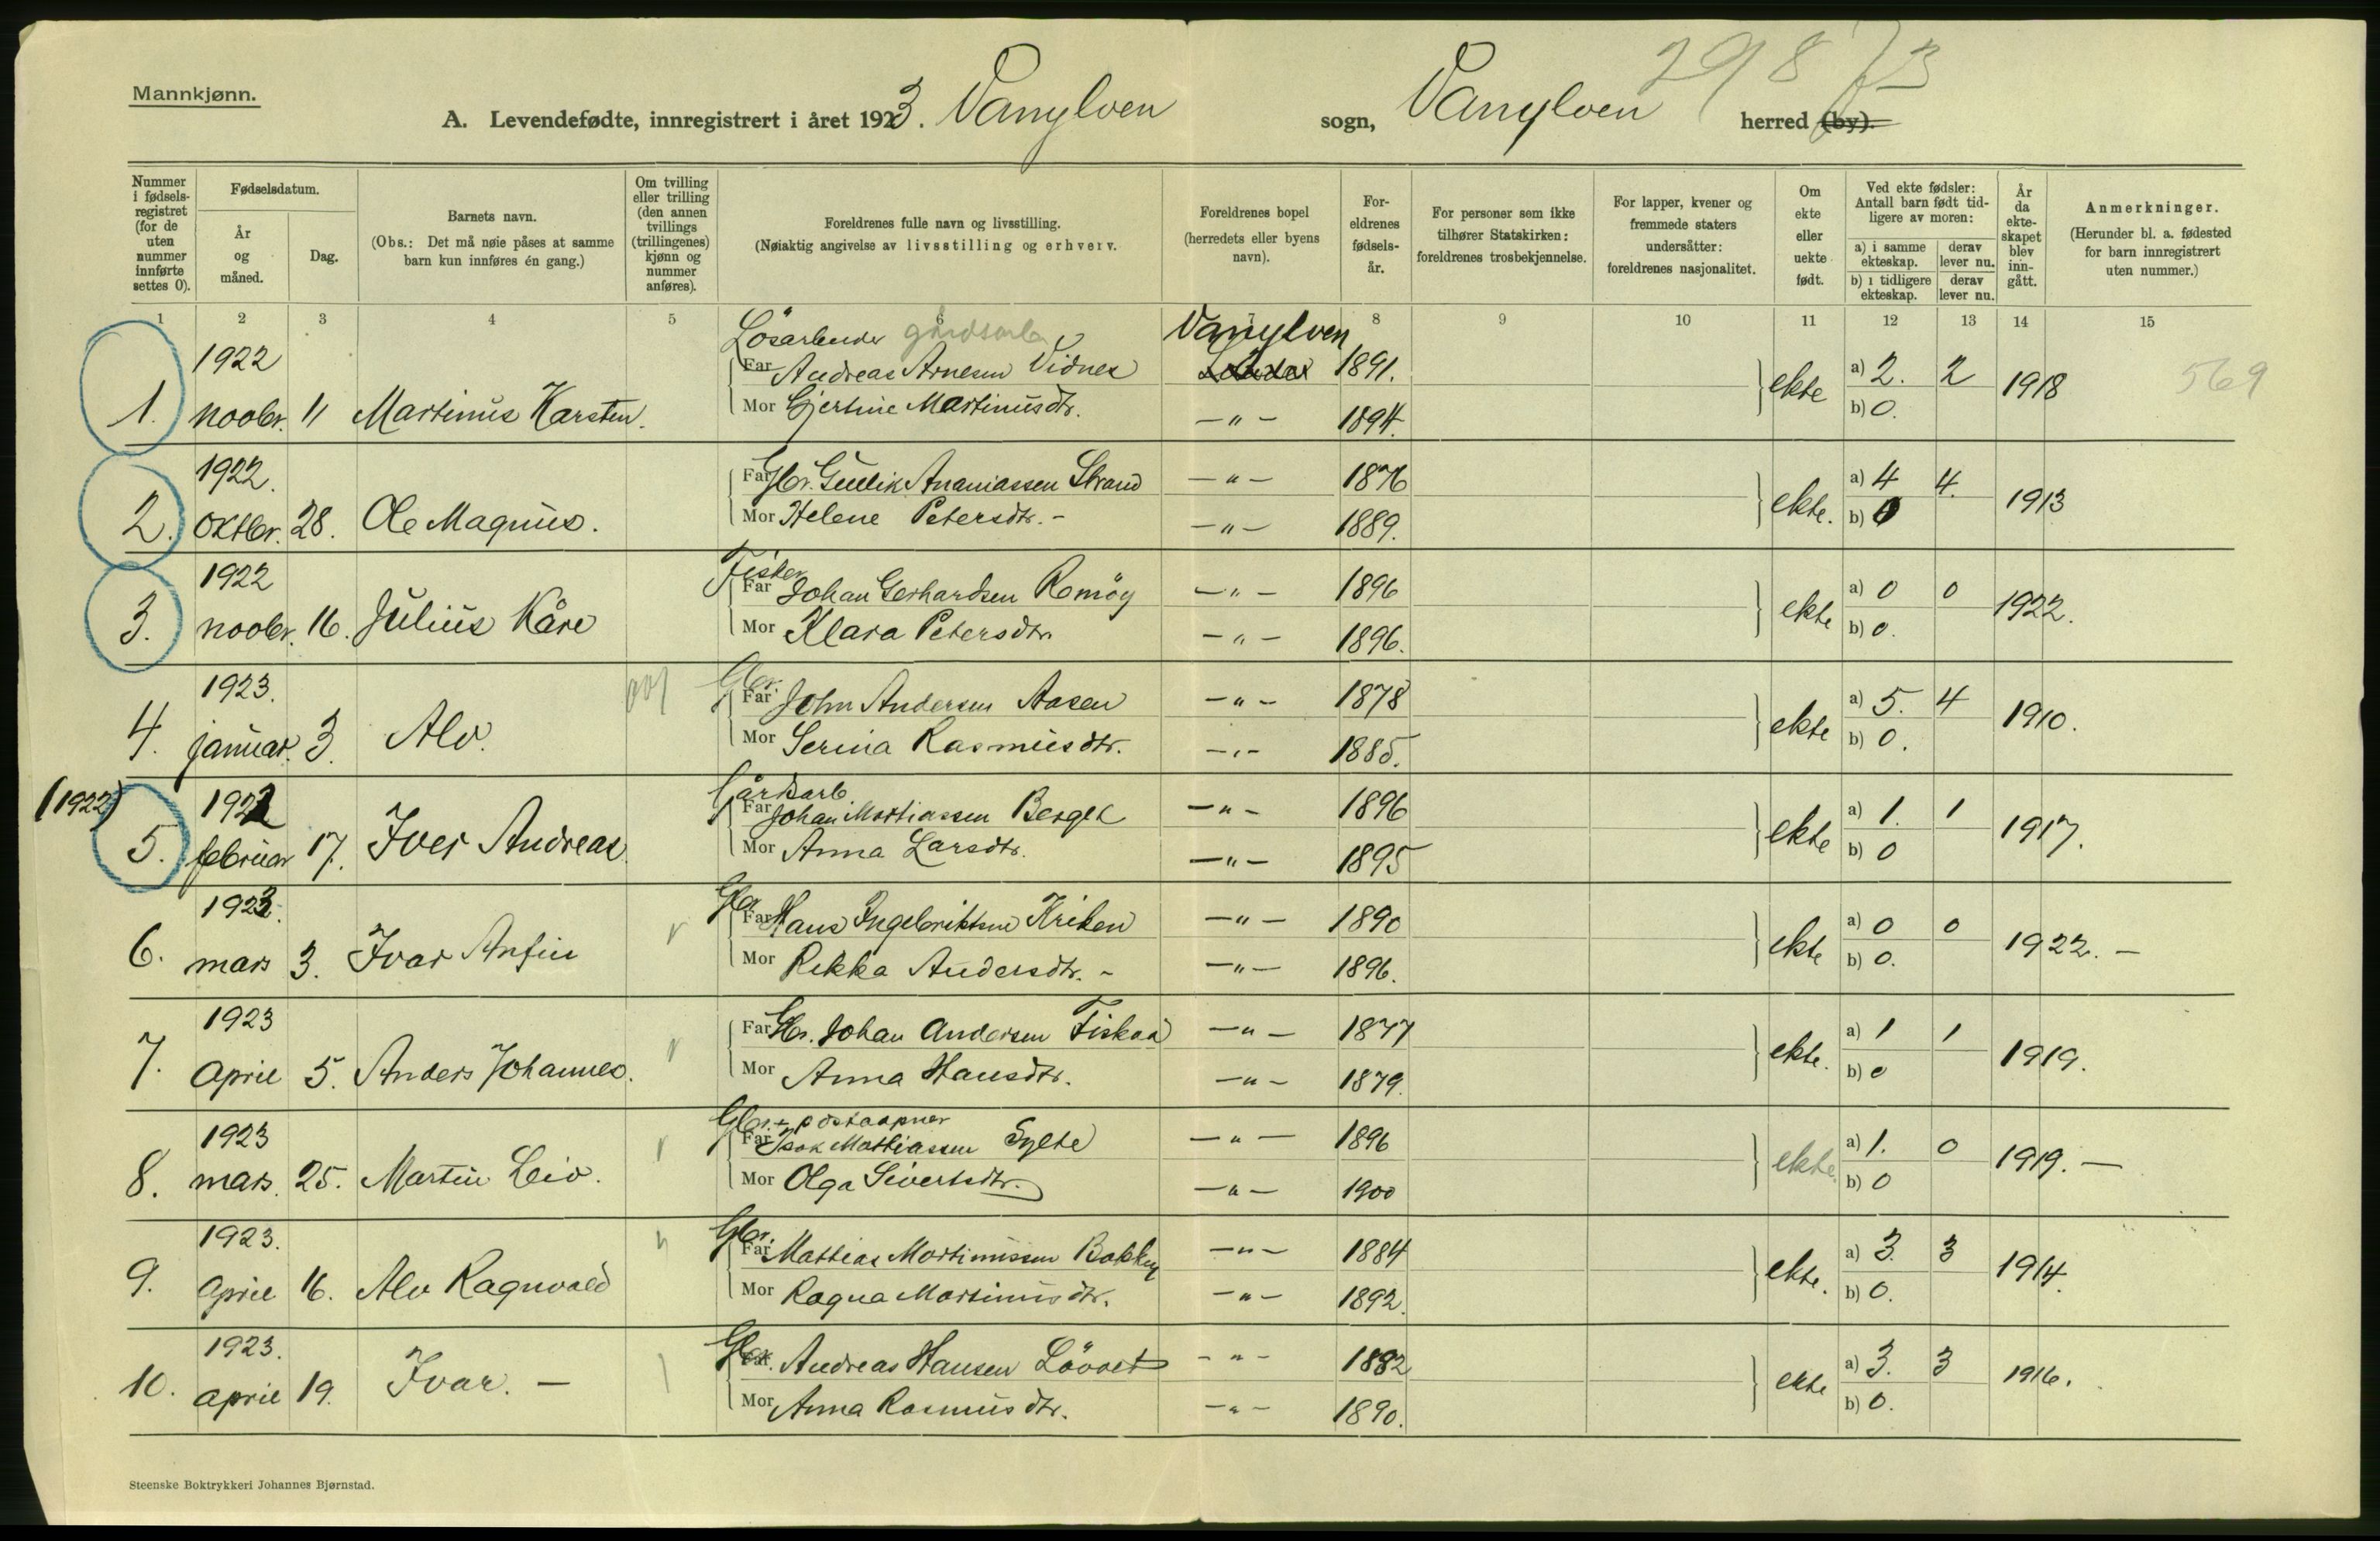 29873
Mannkjønn.
A. Levendefødte, innregistrert i året 1923. Vanylven sogn, Vanylven herred (by).
Nummer i fødsels-registret (for de uten nummer innførte settes 0).
Fødselsdatum.
År og måned.
Dag.
Barnets navn.
(Obs.: Det må nøie påses at samme barn kun innføres én gang.)
Om tvilling eller trilling (den annen tvillings (trillingenes) kjønn og nummer anføres).
Foreldrenes fulle navn og livsstilling.
(Nøiaktig angivelse av livsstilling og erhverv.
Foreldrenes bopel (herredets eller byens navn).
For-eldrenes fødsels-år.
For personer som ikke tilhører Statskirken: foreldrenes trosbekjennelse.
For lapper, kvener og fremmede staters undersåtter: foreldrenes nasjonalitet.
Om ekte eller uekte født.
Ved ekte fødsler: Antall barn født tid-ligere av moren:
a) i samme ekteskap.
derav lever nu.
b) i tidligere ekteskap.
derav lever nu.
År da ekte-skapet blev inn-gått.
Anmerkninger.
(Herunder bl. a. fødested for barn innregistrert uten nummer.)
1 2 3 4 5 6 8 9 10 11 12 13 14 15
Lösarbeider gårdsarb Vanylven
1922 Far Andreas Arnesen Vidnes 1891. a) 2. 2 569
1. novbr. 11 Martinus Karsten. Mor Gjertine Martinusdtr. —"— 1894. ekte b) 0. 1918
1922. Far Gbr. Gullik Ananiassen Strand —"— 1876 a) 4 4.
2. oktbr. 28. Ole Magnus. Mor Helene Petersdtr. - —"— 1889. ekte. b) 0 1913
Fisker
1922 Far Johan Gerhardsen Romöy —"— 1896 a) 0 0
3. novbr. 16. Julius Kåre Mor Klara Petersdtr. —"— 1896. ekte b) 0. 1922.
Gbr.
1923. Far John Andersen Aasen —"— 1878 a) 5. 4
4. januar. 3. Alv. Mor Serina Rasmusdtr. —"— 1885. ekte b) 0. 1910.
Gårdsarb
(1922) 1922 Far Johan Martiassen Berget —"— 1896 a) 1. 1
5. februar 17. Iver Andreas Mor Anna Larsdtr. —"— 1895 ekte b) 0 1917.
Gbr
1923. Far Hans Ingebriktsen Kriken —"— 1890 a) 0 0
6. mars 3. Ivar Anfin Mor Rikka Andersdtr. - —"— 1896. ekte b) 0. 1922. —
1923 Far Gbr. Johan Andersen Fiskaa —"— 1877 a) 1 1
7. April 5. Anders Johannes. Mor Anna Hansdtr. —"— 1879. ekte. b) 0 1919.
Gbr. + postaapner
1923 Far Isak Mattiassen Sylte —"— 1896 a) 1. 0
8. mars. 25. Martin Leiv. Mor Olga Sivertsdtr. —"— 1900 ekte. b) 0 1919. —
Gbr.
1923. Far Mattias Martinussen —"— 1884 a) 3. 3
9. April 16. Alv Ragnvald Mor Ragna Martinusdtr. —"— 1892. ekte. b) 0. 1914.
Gbr.
1923. Far. Andreas Hansen Lövoet —"— 1882 a) 3. 3
10. april 19. Ivar. — Mor Anna Rasmusdtr. —"— 1890. ekte b) 0. 1916.
Steenske Boktrykkeri Johannes Bjørnstad.